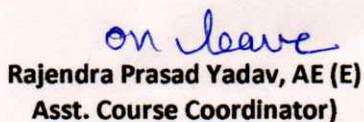 on leave
Rajendra Prasad Yadav, AE (E)
Asst. Course Coordinator)